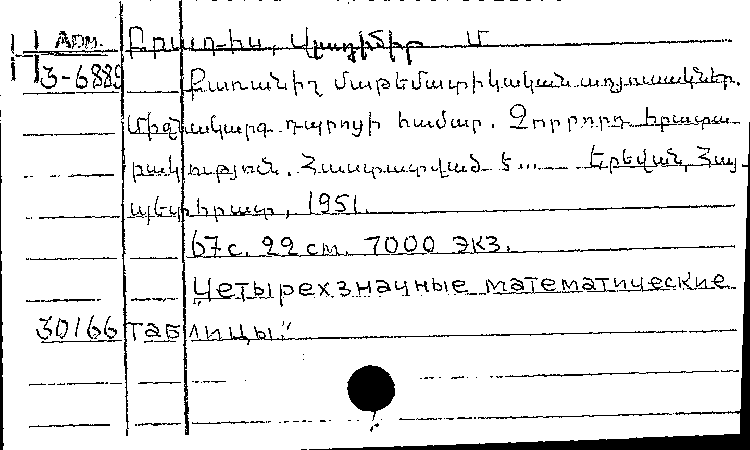 Арм. Բրադիս, Վլադիմիր Մ
3-6889 Քառանիշ մաթեմատիկական աղյուսակներ.
Միջնակարգ դպրոցի համար. Չորրորդ հրատա-
րակություն. Հաստատված է... Երևան, Հայ-
պետհրատ, 1951.
67 с. 22 см. 7000 экз.
"Четырехзначные математические
30166 таблицы."